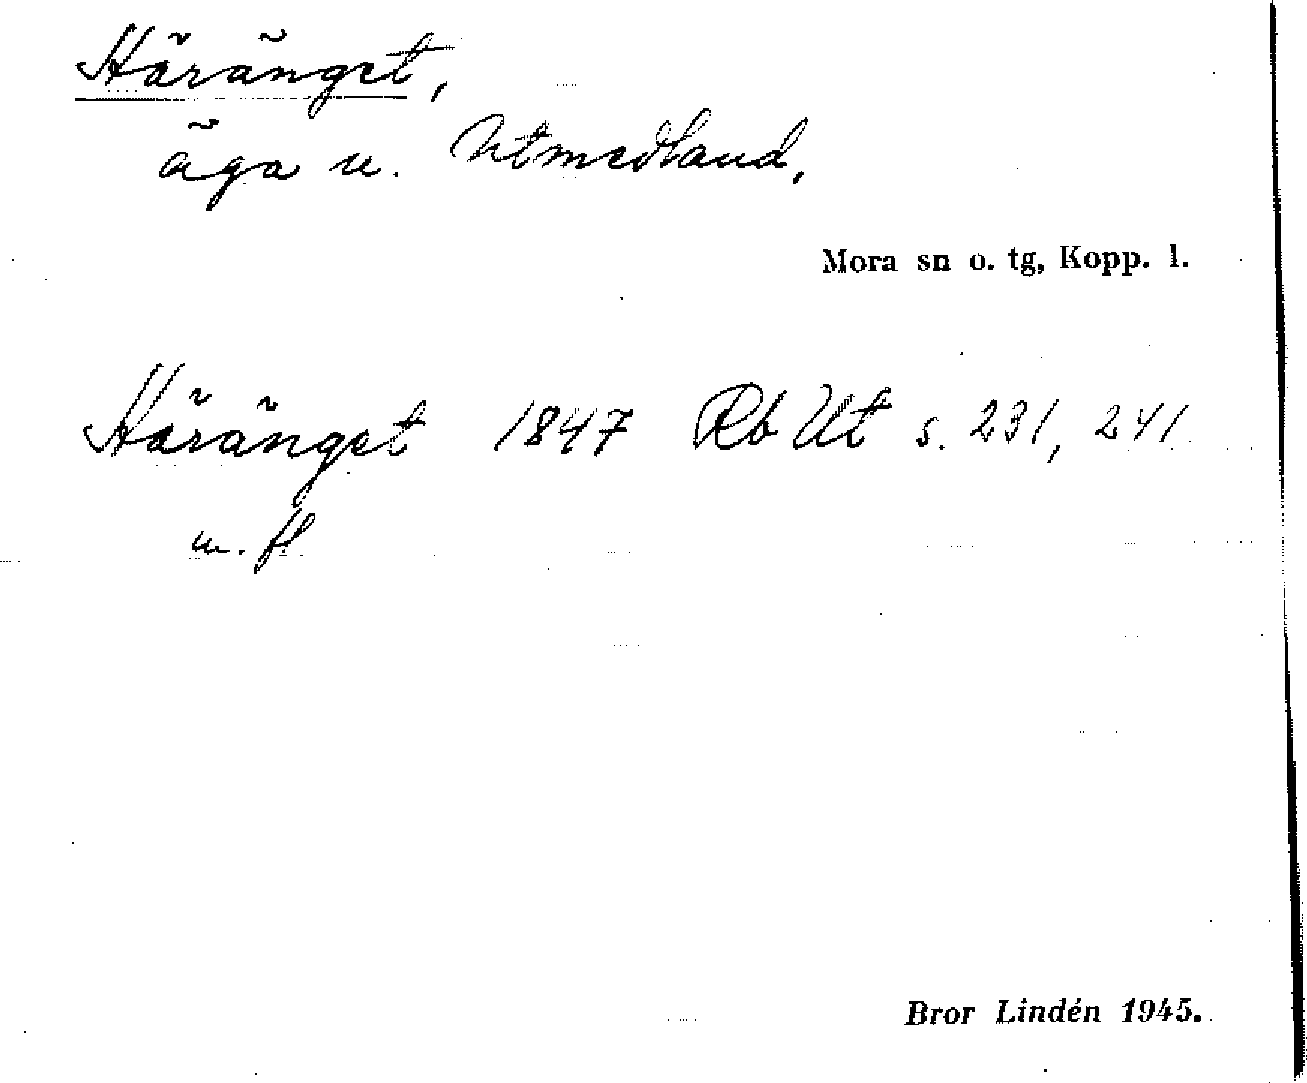 Häränget,
äga u. Utmedland,
Mora sn o. tg, Kopp. l.
Häränget 1847 Rb Ut s. 231, 241
m. fl
Bror Lindén 1945.